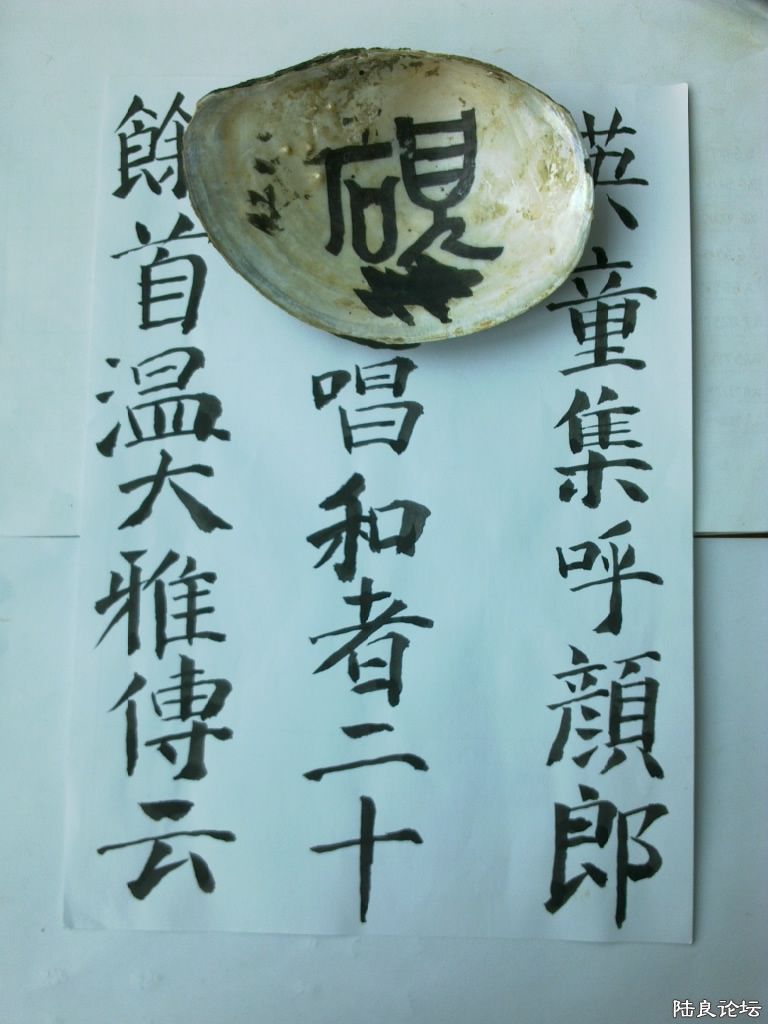 英童集呼顔郎
唱和者二十
餘首温大雅傳云
硯
陆良论坛